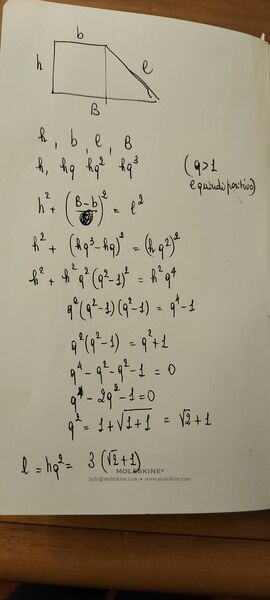 b
h
l
B
h , b , l , B
h, hq hq² hq³ (q>1
e quindi positivo)
h² + (B-b)² = l²
h² + (hq³-hq)² = (hq²)²
h² + h²q²(q²-1)² = h²q⁴
q²(q²-1)(q²-1) = q⁴-1
q²(q²-1) = q²+1
q⁴-q²-q²-1 = 0
q⁴-2q²-1=0
q² = 1+√1+1 = √2+1
l = hq² = 3(√2+1)
MOLESKINE®
info@moleskine.com • www.moleskine.com